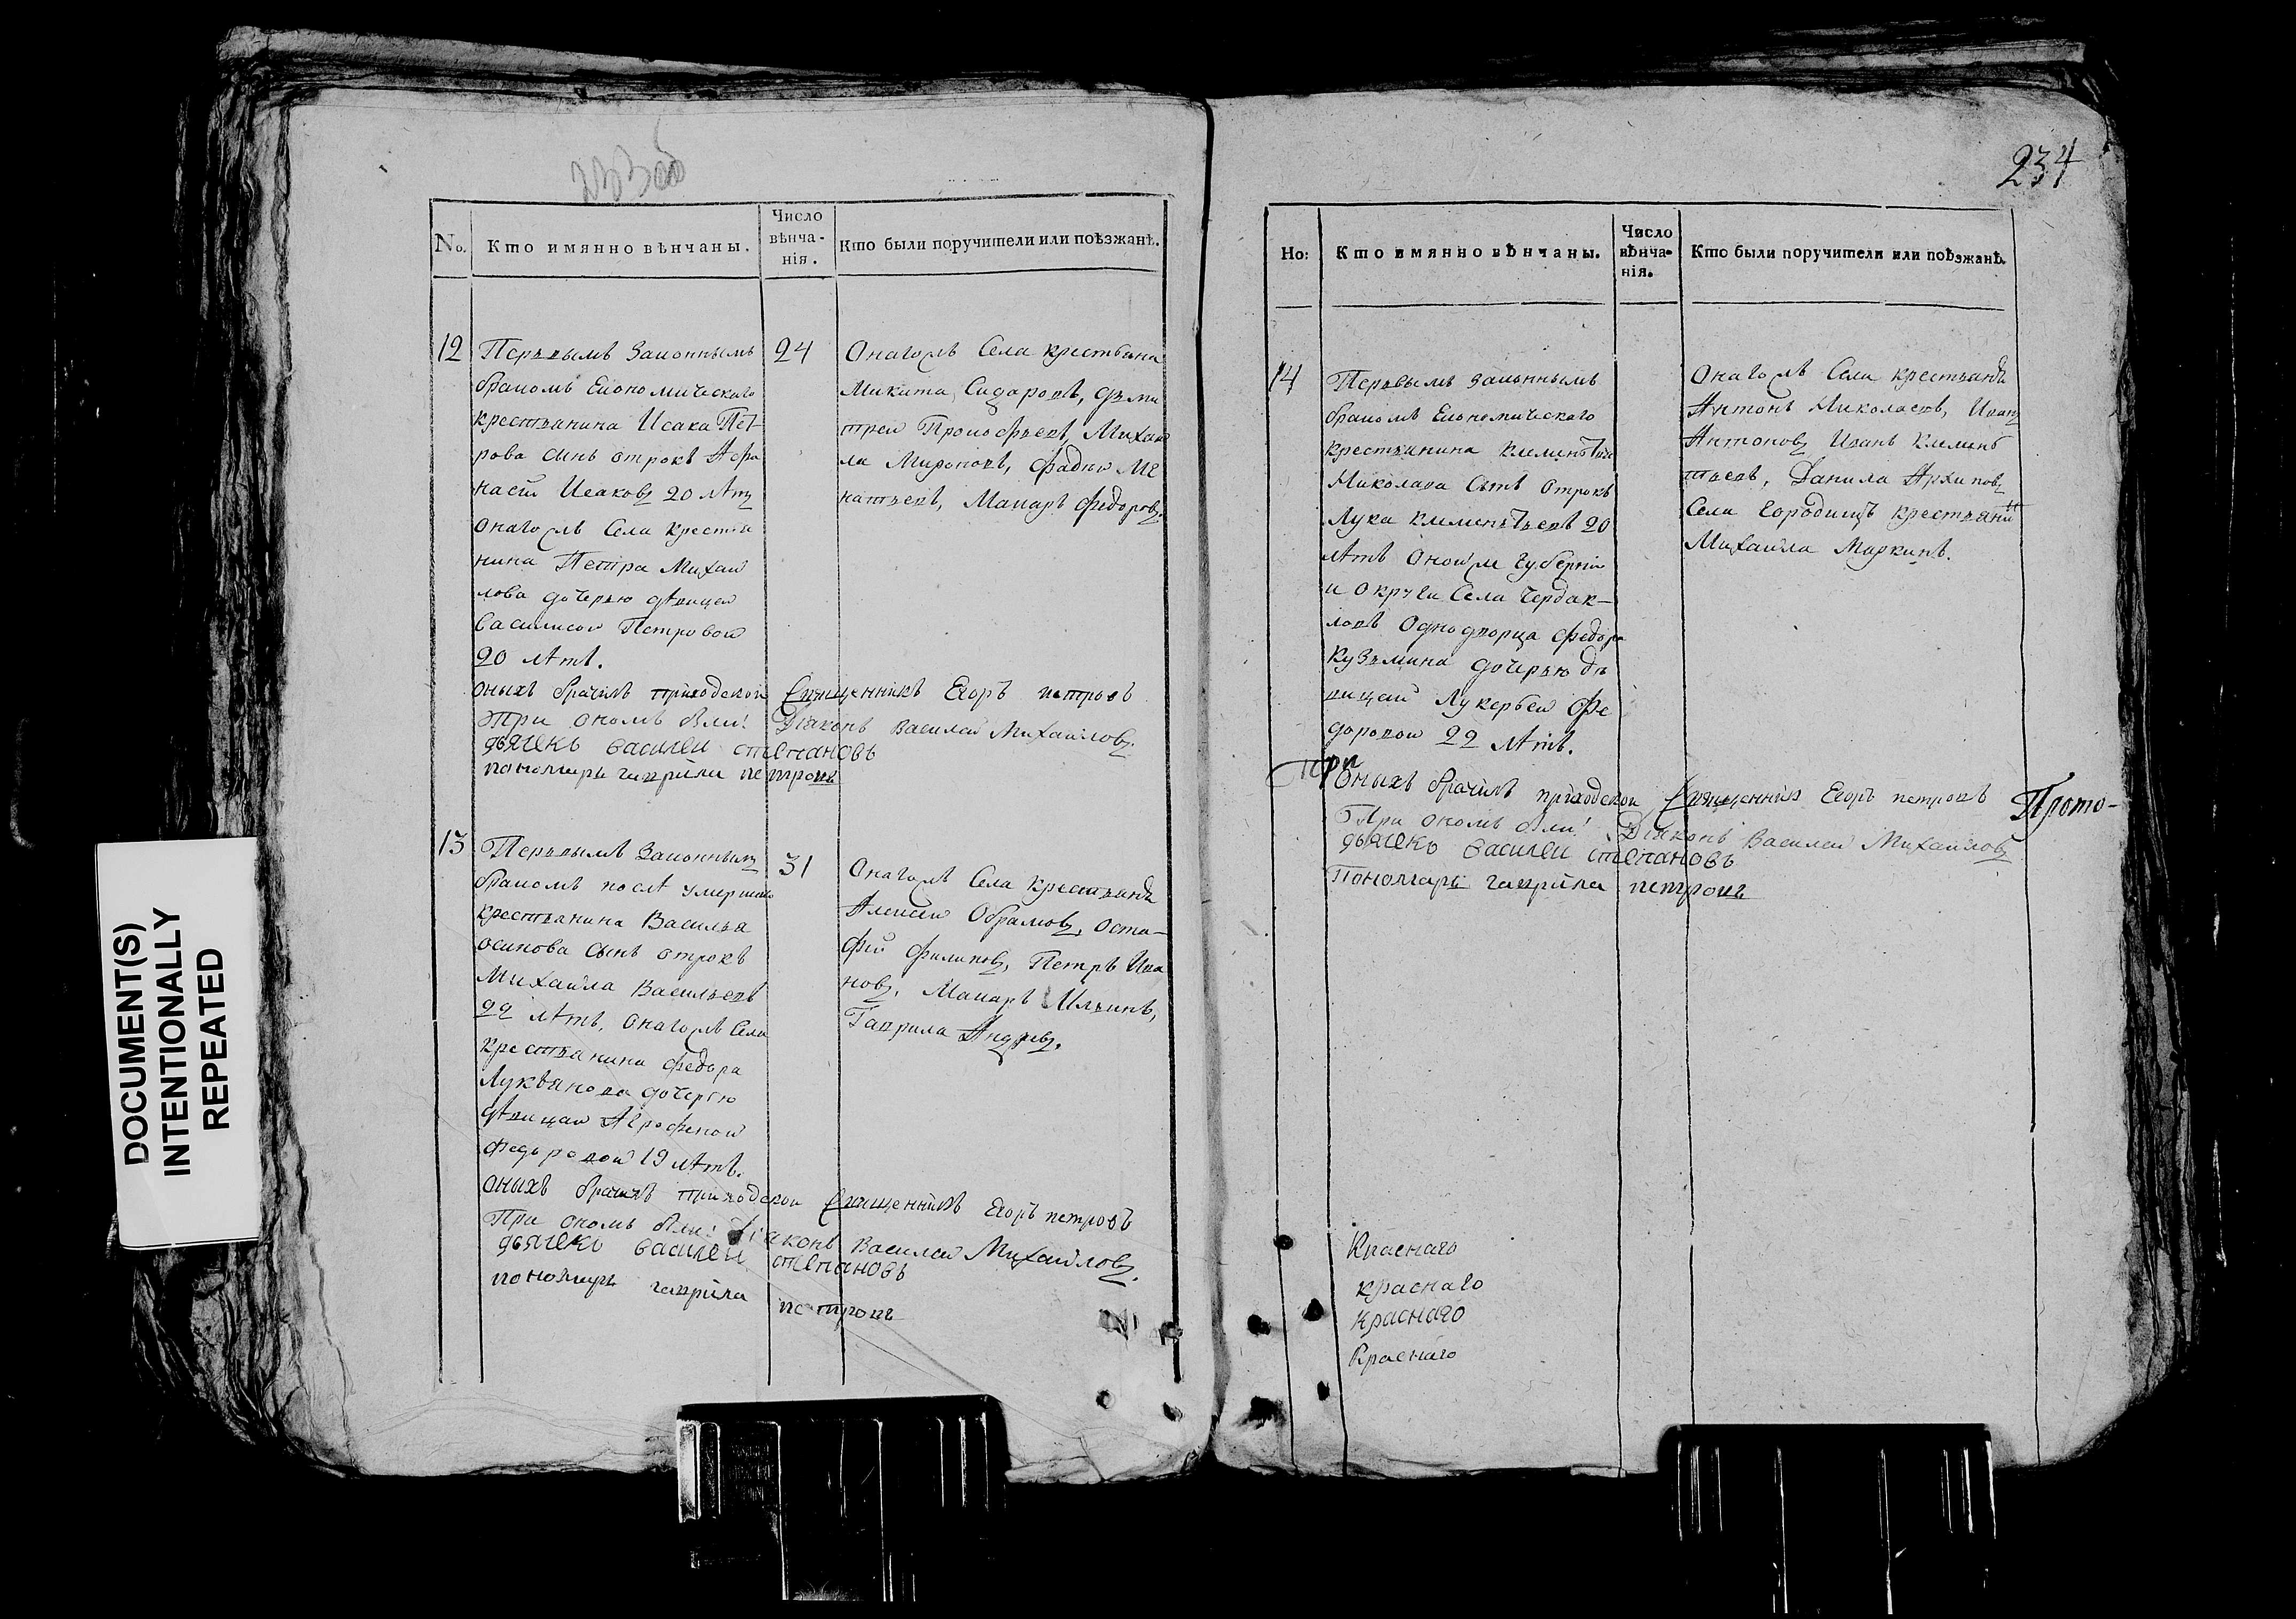 233об
No.
Кто имянно вѣнчаны.
Число
вѣнча-
нія.
Кто были поручители или поѣзжанѣ.
12
Первымъ Законнымъ
бракомъ Економическаго
крестьянина Исака Пет
рова сынъ отрокъ Афа
насей Исаковъ 20 лѣтъ
онагожъ Села крестья
нина Петра Михай
лова дочерью дѣвицей
Василисой Петровой
20 лѣтъ.
24
Онагожъ Села крестьяна
Микита Сидаровъ, Дьми
трей Прокофьевъ, Михай
ла Мироновъ, Фадей Иг
натьевъ, Макаръ Федоровъ.
оныхъ брачилъ приходской Священникъ Егоръ петровъ
При ономъ были: Діаконъ Василей Михайловъ.
дьячекъ василеи степановъ
пономарь гаврила петровъ
13
Первымъ Законнымъ
бракомъ послѣ умершаго
крестьянина Василья
осипова сынъ отрокъ
Михайла Васильевъ
22 лѣтъ, онагожъ Села
крестьянина Федора
Лукьянова дочерью
дѣвицей Агрофеной
Федоровой 19 лѣтъ.
31
Онагожъ Села крестьянѣ
Алексей Обрамовъ, Оста-
фей Филиповъ, Петръ Ива
новъ, Макаръ Ильинъ,
Гаврила Андревъ.
оныхъ брачилъ приходской Священникъ Егоръ петровъ
При ономъ были: Діаконъ Василей Михайловъ.
дьячекъ василеи степановъ
пономарь гаврила петровъ
234
Но:
Кто имянно вѣнчаны.
Число
вѣнча-
нія.
Кто были поручители или поѣзжанѣ.
14
Первымъ законнымъ
бракомъ Економическаго
крестьянина Клеменьтья
Николаева Сынъ Отрокъ
Лука Клеменьтьевъ 20
лѣтъ Оной же Губерніи
и Округи Села Чердак-
ловъ Однодворца Федора
Кузьмина дочерью дѣ
вицей Лукерьей Фе
доровой 22 лѣтъ.
Онагожъ Села крестьянѣ
Антонъ Николаевъ, Иванъ
Антоновъ Иванъ Клемень
тьевъ, Данила Архиповъ
Села Городищъ крестьянинъ
Михайла Маркинъ.
При
Оныхъ брачилъ приходской Священникъ Егоръ петровъ
Прото-
При ономъ были: Діаконъ Василей Михайловъ
дьячекъ василеи степановъ
Пономарь гаврила петровъ
Краснаго
краснаго
краснаго
Краснаго
DOCUMENT(S)
INTENTIONALLY
REPEATED